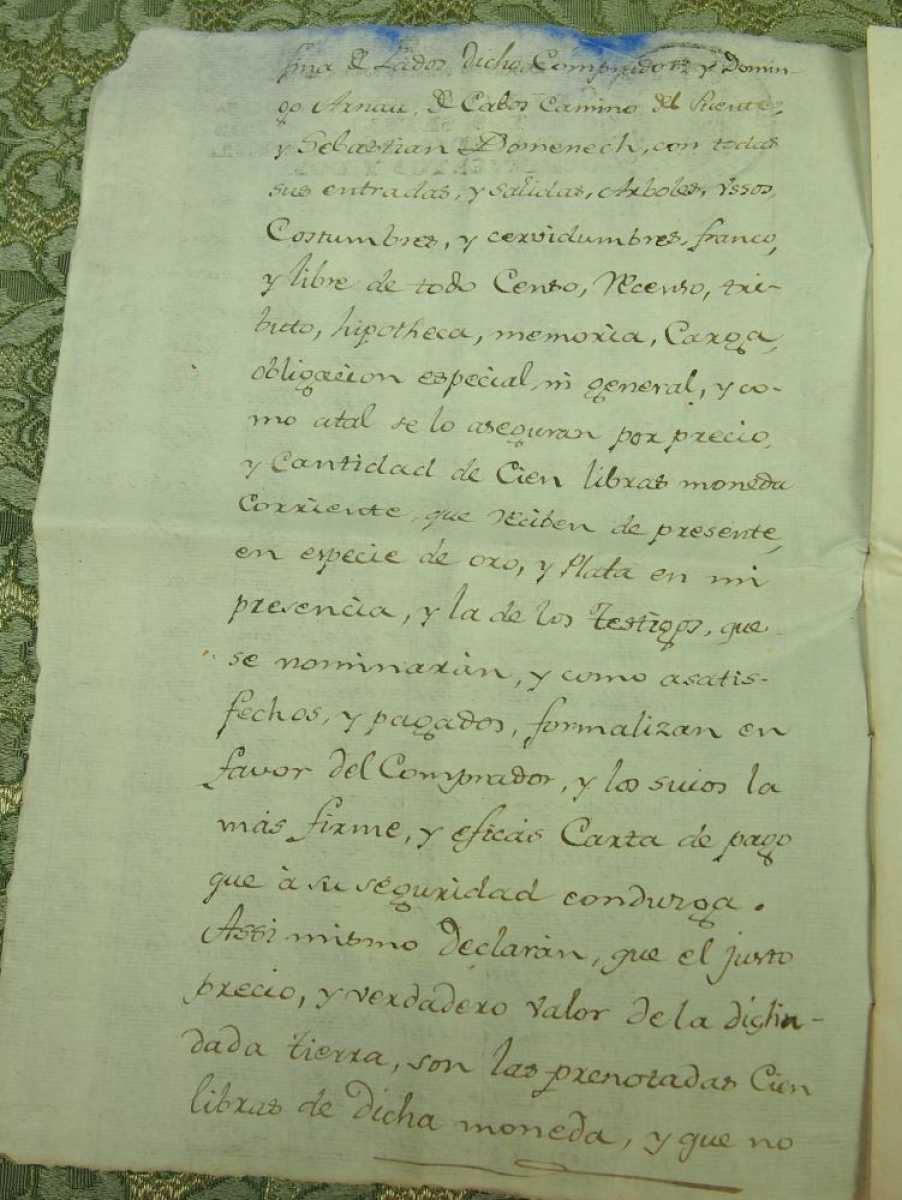 fina de Lados dicho Comprador, y Domin-
go Arnau, de Cabos Camino del Puente,
y Sebastian Domenech, con todas
sus entradas, y salidas, Arboles, Vssos,
Costumbres, y cervidumbres, franco,
y libre de todo Censo, Recenso, tri-
buto, hipotheca, memoria, Carga,
obligacion especial, ni general, y co-
mo atal se lo aseguran por precio,
y Cantidad de Cien libras moneda
Corriente, que Reciben de presente,
en especie de oro, y Plata en mi
presencia, y la de los Testigos, que
se nominarán, y como asatis-
fechos, y pagados, formalizan en
favor del Comprador, y los suios la
más firme, y eficás Carta de pago
que à su séguridad condurga.
Assi mismo declarán, que el justo
precio, y verdadero valor de la
dada tierra, son las prenotadas Cien
libras de dicha moneda, y que no